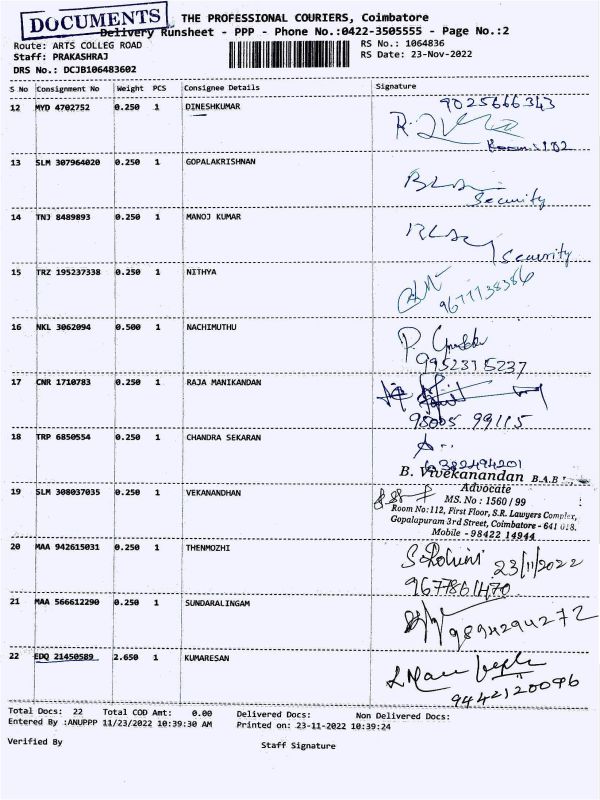 DOCUMENTS
THE PROFESSIONAL COURIERS, Coimbatore
Delivery Runsheet - PPP - Phone No.:0422-3505555 - Page No.:2
Route: ARTS COLLEG ROAD RS No.: 1064836
Staff: PRAKASHRAJ RS Date: 23-Nov-2022
DRS No.: DCJB106483602
S No Consignment No Weight PCS Consignee Details Signature
12 MYD 4702752 0.250 1 DINESHKUMAR 9025666343
Room:102
13 SLM 307964020 0.250 1 GOPALAKRISHNAN
Security
14 TNJ 8489893 0.250 1 MANOJ KUMAR
Security
15 TRZ 195237338 0.250 1 NITHYA
9677738386
16 NKL 3062094 0.500 1 NACHIMUTHU
9952315237
17 CNR 1710783 0.250 1 RAJA MANIKANDAN
98005 99115
18 TRP 6850554 0.250 1 CHANDRA SEKARAN
B. Vivekanandan B.A.B.L.
Advocate
19 SLM 308037035 0.250 1 VEKANANDHAN
MS. No : 1560 / 99
Room No:112, First Floor, S.R. Lawyers Complex,
Gopalapuram 3rd Street, Coimbatore - 641 018.
Mobile - 98422 14944
20 MAA 942615031 0.250 1 THENMOZHI
23/11/2022
9677861470
21 MAA 566612290 0.250 1 SUNDARALINGAM
9894294272
22 EDQ 21450589 2.650 1 KUMARESAN
9442120096
Total Docs: 22 Total COD Amt: 0.00 Delivered Docs: Non Delivered Docs:
Entered By :ANUPPP 11/23/2022 10:39:30 AM Printed on: 23-11-2022 10:39:24
Verified By Staff Signature